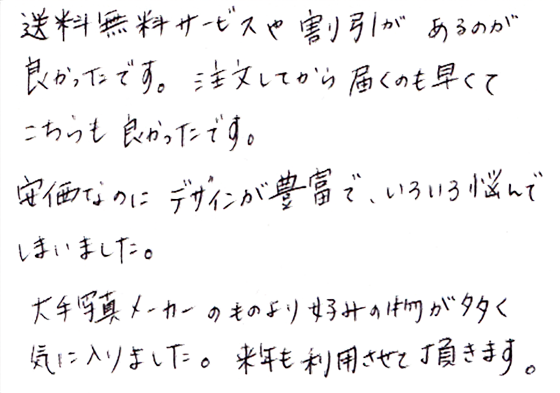 送料無料サービスや割り引があるのが
良かったです。注文してから届くのも早くて
こちらも良かったです。
安価なのにデザインが豊富で、いろいろ悩んで
しまいました。
大手写真メーカーのものより好みの物が多く
気に入りました。来年も利用させて頂きます。